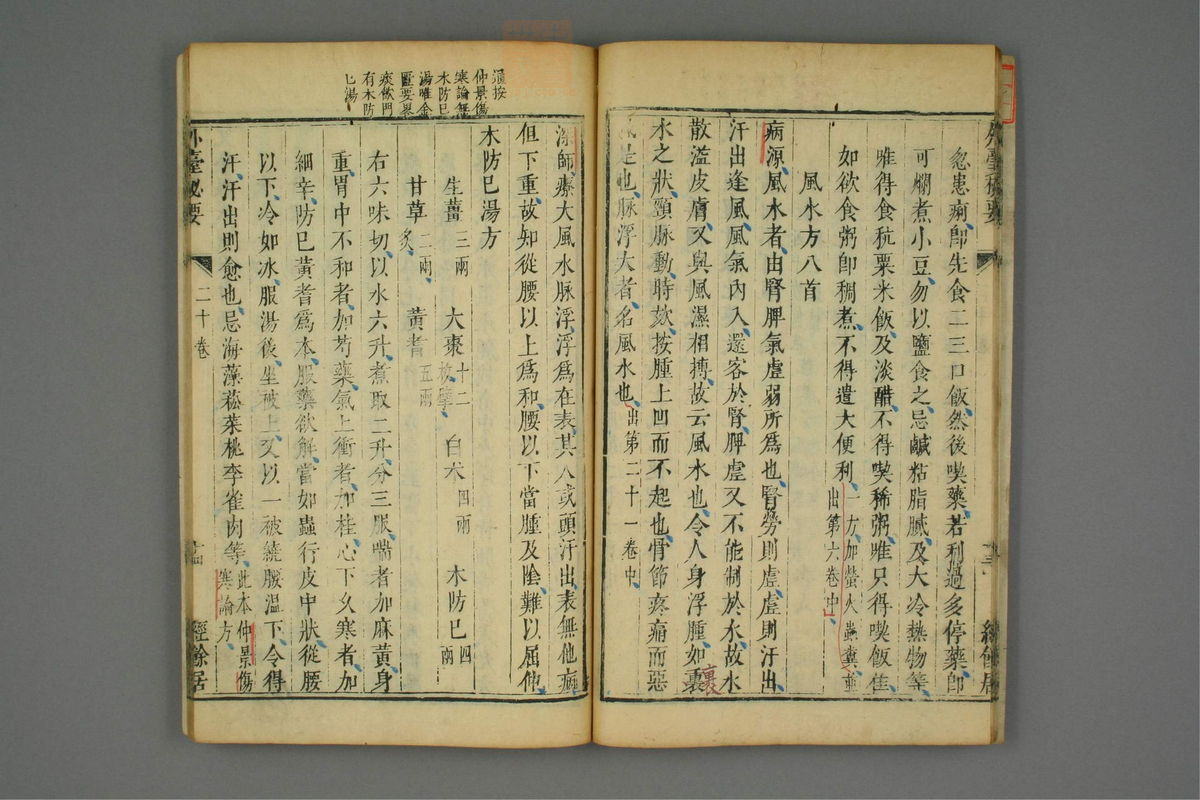 外臺秘要
忽患痢卽先食二三口飯然後喫藥若利過多停藥卽
可爛煮小豆勿以鹽食之忌鹹粘脂膩及大冷熱物等
唯得食秔粟米飯及淡醋不得喫稀粥唯只得喫飯隹
如欲食粥卽稠煮不得遣大便利一方加螢火蟲糞並
出第六卷中
風水方八首
病源風水者由腎脾氣虛弱所爲也腎勞則虛虛則汗出
汗出逢風風氣內入還客於腎脾虛又不能制於水故水
散溢皮膚又與風濕相搏故云風水也令人身浮腫如裏
裹
水之狀頸脉動時欬按腫上凹而不起也骨節疼痛而惡
風是也脉浮大者名風水也出第二十一卷中
深師療大風水脉浮浮爲在表其人或頭汗出表無他病
但下重故知從腰以上爲和腰以下當腫及陰難以屈伸
木防巳湯方
生薑三兩 大棗十二枚擘 白朮四兩 木防巳四兩
甘草二兩炙 黃耆五兩
右六味切以水六升煮取二升分三服喘者加麻黃身
重胃中不和者加芍藥氣上衝者加桂心下久寒者加
細辛防巳黃耆爲本服藥欲解當如蟲行皮中狀從腰
以下冷如冰服湯後坐被上又以一被繞腰溫下令得
汗汗出則愈也忌海藻菘菜桃李雀肉等此本仲景傷
寒論方
外臺秘要
二十卷
十四
經餘居
按
仲景傷
寒論無
木防巳
湯唯金
匱要畧
痰飮門
有木防
巳湯